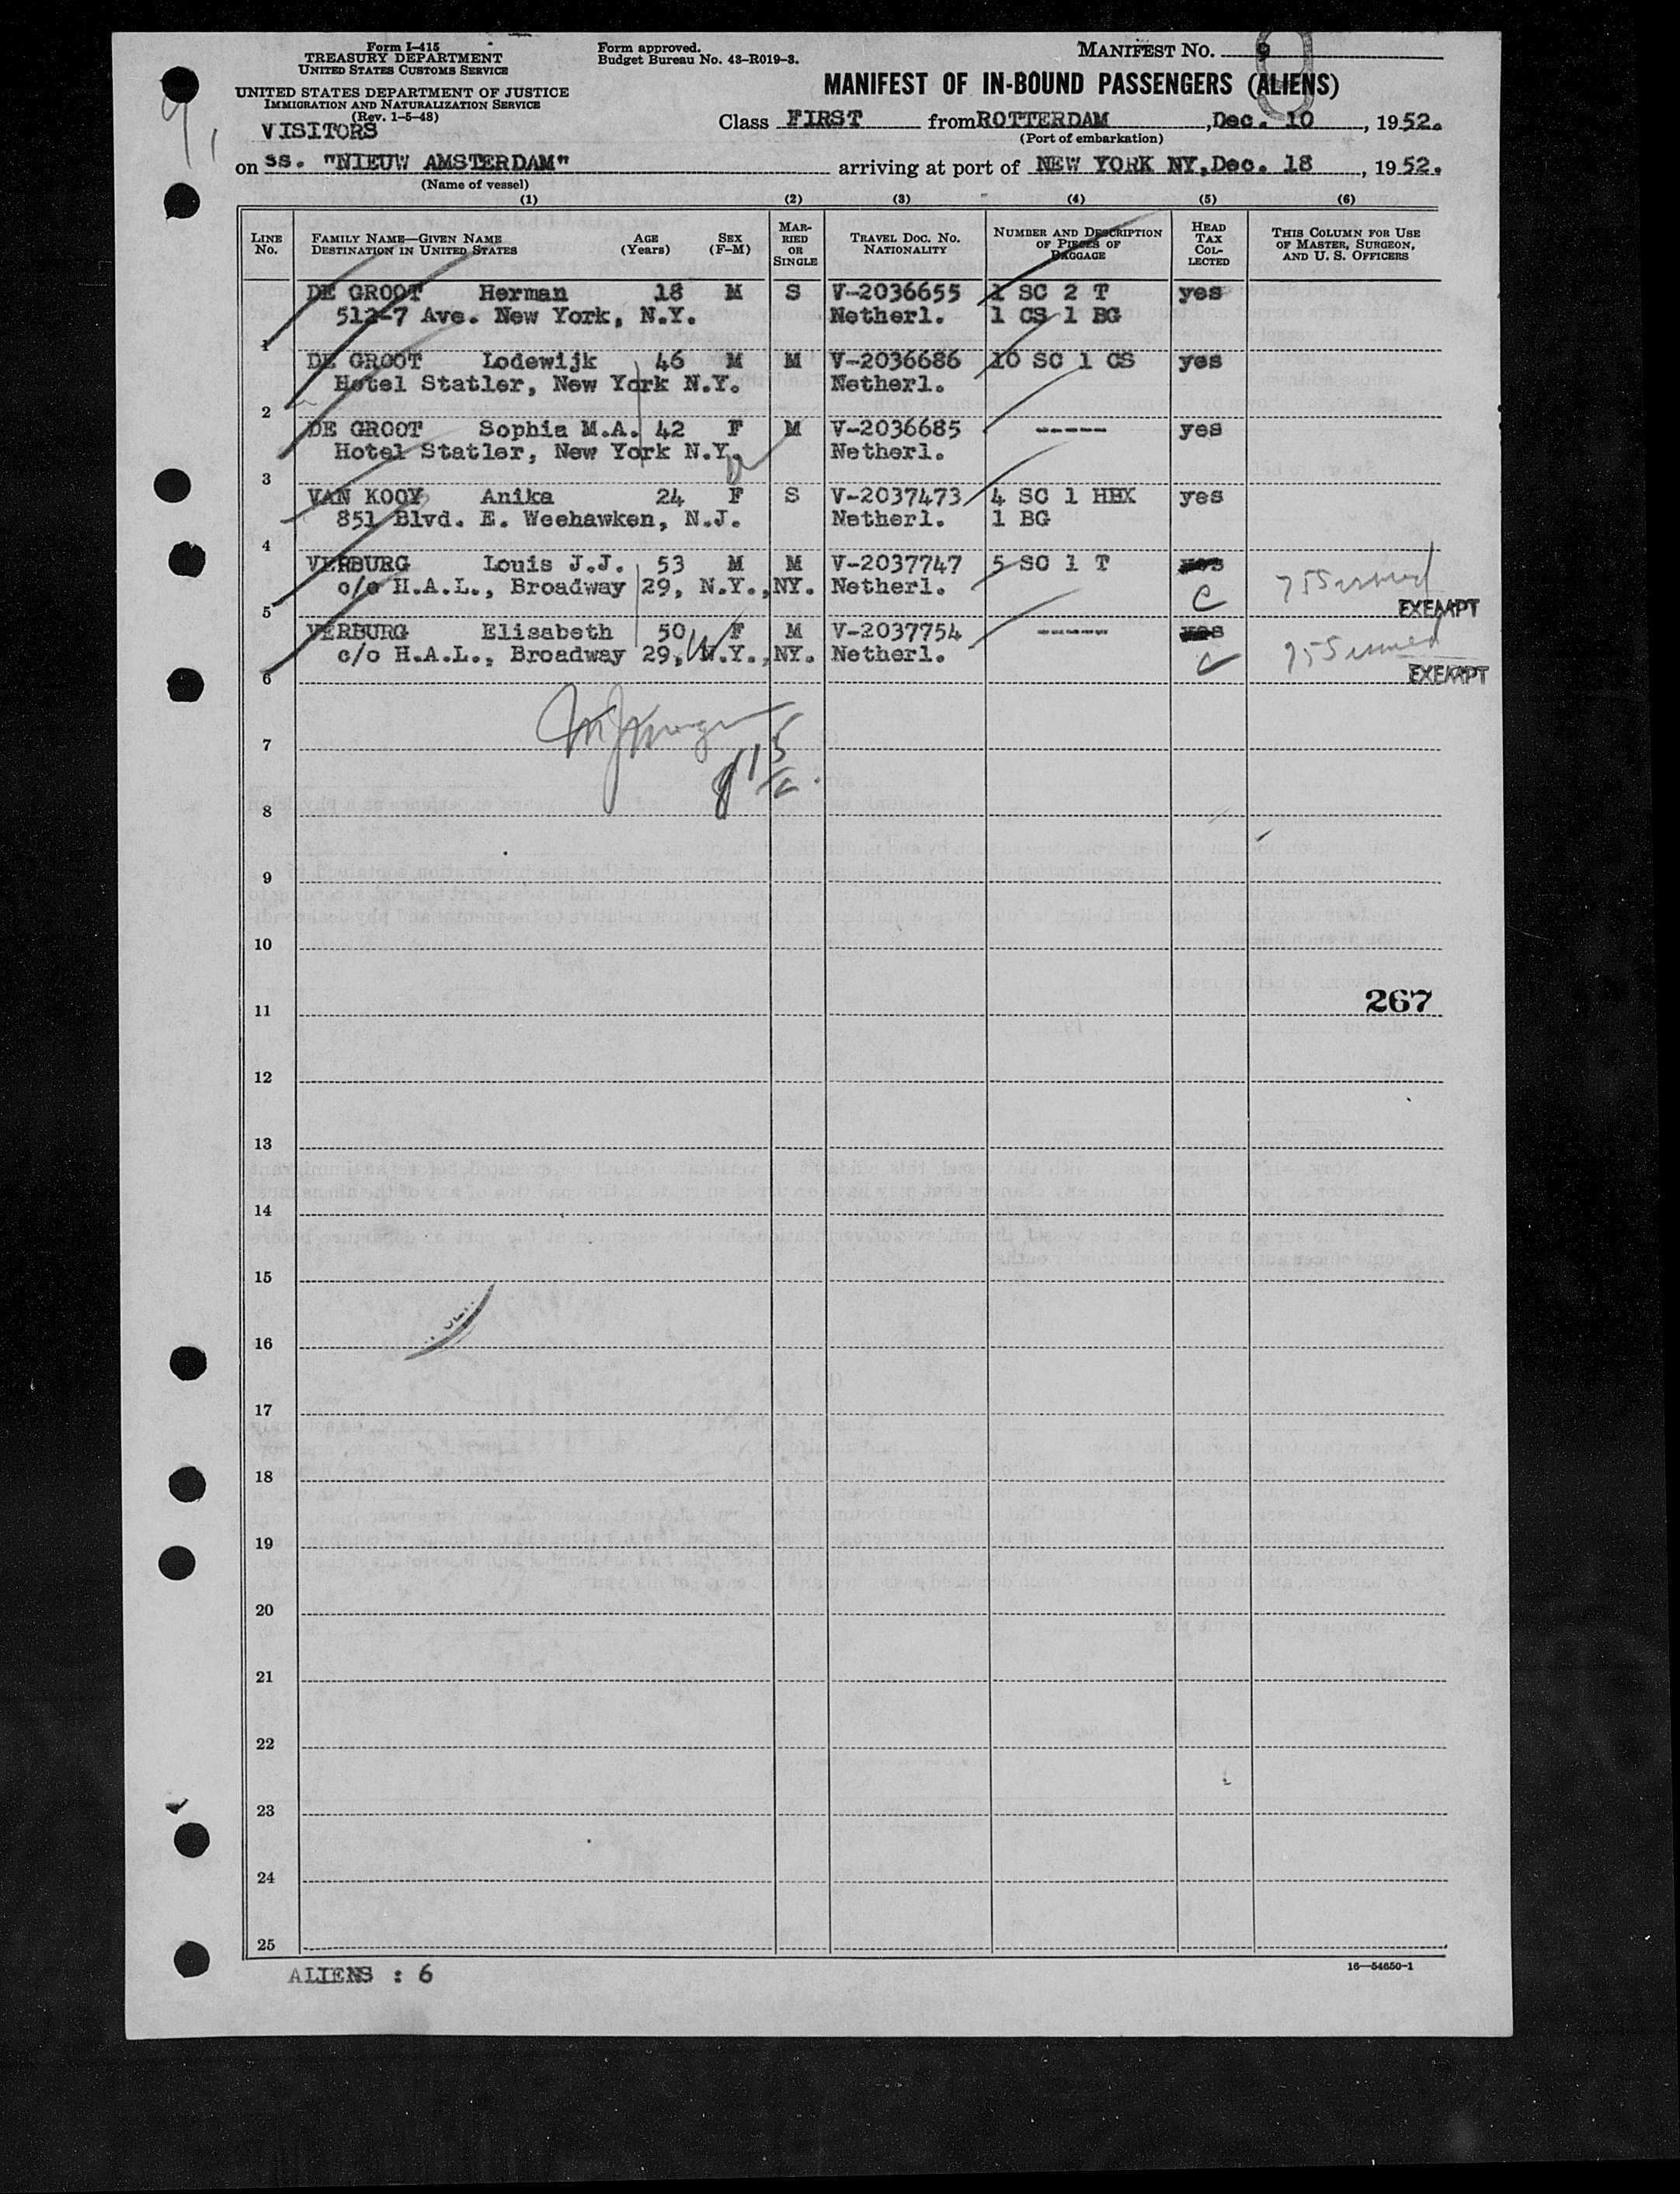 Form I-415
TREASURY DEPARTMENT
UNITED STATES CUSTOMS SERVICE
UNITED STATES DEPARTMENT OF JUSTICE
IMMIGRATION AND NATURALIZATION SERVICE
(Rev. 1-5-48)
VISITORS
Form approved.
Budget Bureau No. 43-R019-3.
MANIFEST NO. 9
MANIFEST OF IN-BOUND PASSENGERS (ALIENS)
Class FIRST from ROTTERDAM, Dec. 10, 1952.
(Port of embarkation)
on ss. "NIEUW AMSTERDAM" arriving at port of NEW YORK NY, Dec. 18, 1952.
(Name of vessel)
(1) (2) (3) (4) (5) (6)
LINE NO. FAMILY NAME—GIVEN NAME DESTINATION IN UNITED STATES AGE (Years) SEX (F-M) MARRIED OR SINGLE TRAVEL DOC. NO. NATIONALITY NUMBER AND DESCRIPTION OF PIECES OF BAGGAGE HEAD TAX COLLECTED THIS COLUMN FOR USE OF MASTER, SURGEON, AND U. S. OFFICERS
DE GROOT Herman 18 M S V-2036655 1 SC 2 T yes
512-7 Ave. New York, N.Y. Netherl. 1 CS 1 BG
1
DE GROOT Lodewijk 46 M M V-2036686 10 SC 1 CS yes
Hotel Statler, New York N.Y. Netherl.
2
DE GROOT Sophia M.A. 42 F M V-2036685 ----- yes
Hotel Statler, New York N.Y. Netherl.
3
VAN KOOY Anika 24 F S V-2037473 4 SC 1 HBX yes
851 Blvd. E. Weehawken, N.J. Netherl. 1 BG
4
VERBURG Louis J.J. 53 M M V-2037747 5 SC 1 T yes
c/o H.A.L., Broadway 29, N.Y., NY. Netherl. C
EXEMPT
5
VERBURG Elisabeth 50 F M V-2037754 ----- yes
c/o H.A.L., Broadway 29, N.Y., NY. Netherl. C
EXEMPT
6
7
8
9
10
267
11
12
13
14
15
16
17
18
19
20
21
22
23
24
25
ALIENS : 6
16—54650-1